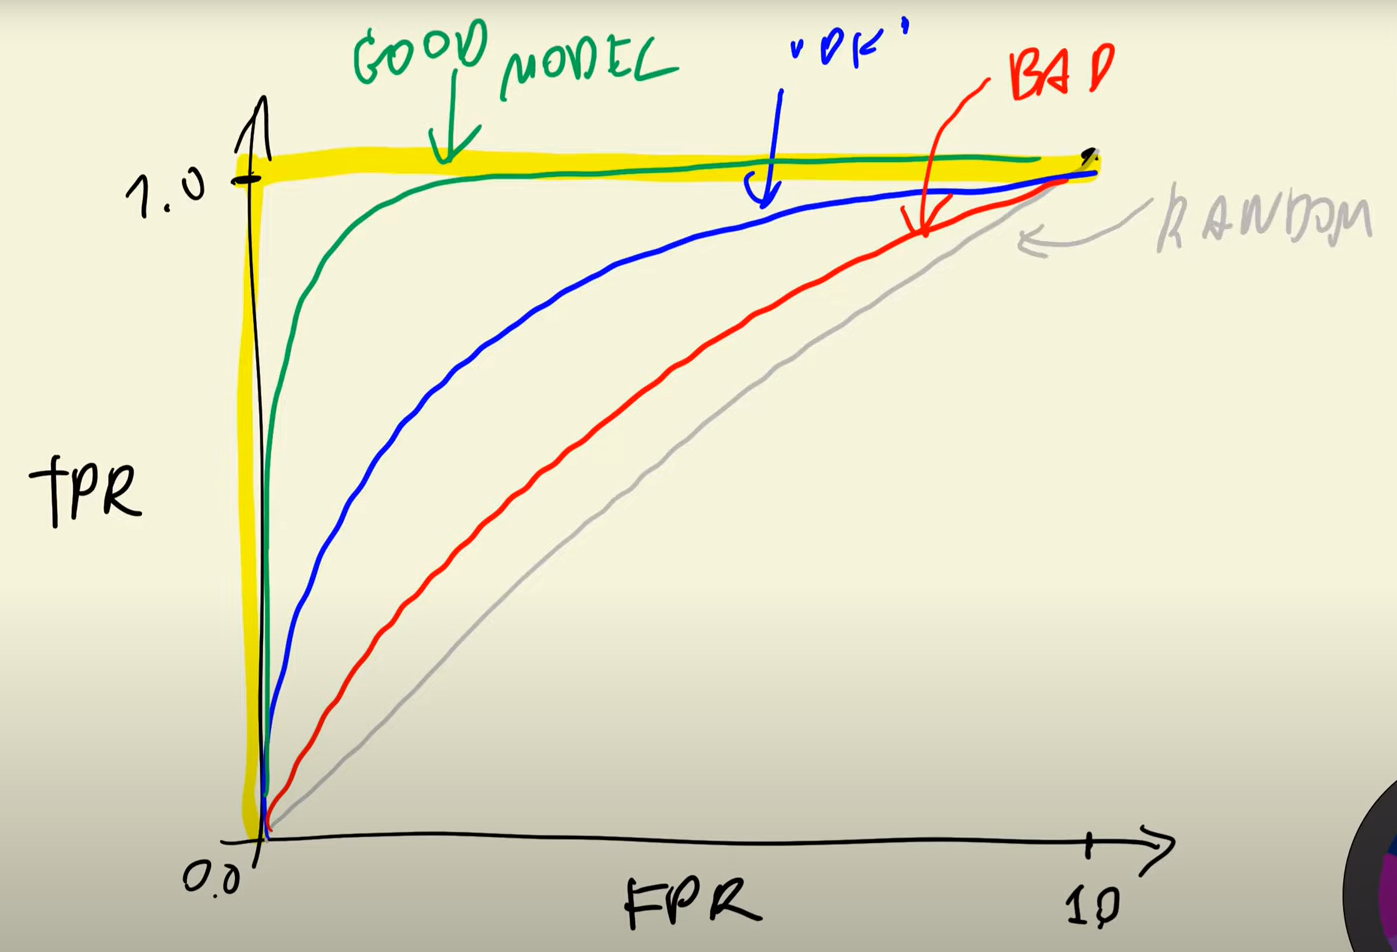 GOOD MODEL
"OK"
BAD
1.0
RANDOM
TPR
0.0
FPR
1.0